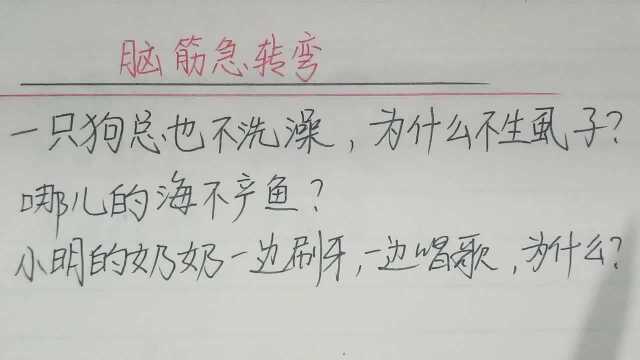 脑筋急转弯
一只狗总也不洗澡，为什么不生虱子？
哪儿的海不产鱼？
小明的奶奶一边刷牙，一边唱歌，为什么？